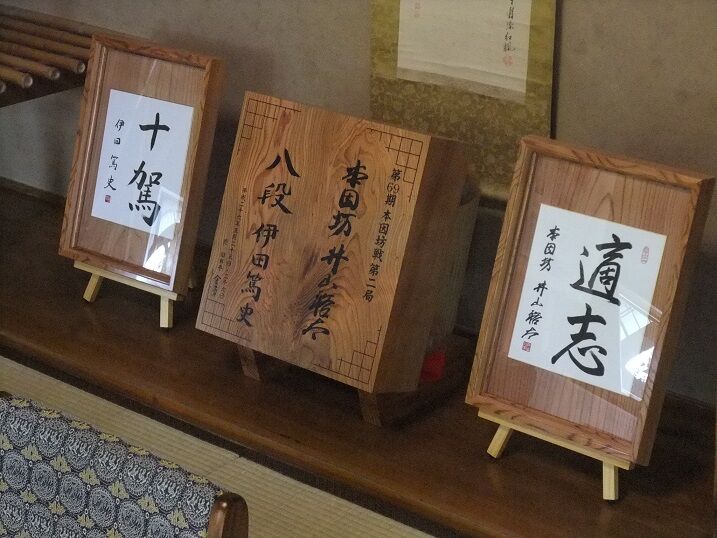 十駕
伊田篤史
第69期 本因坊戦 第二局
本因坊 井山裕太
八段 伊田篤史
適志
本因坊 井山裕太